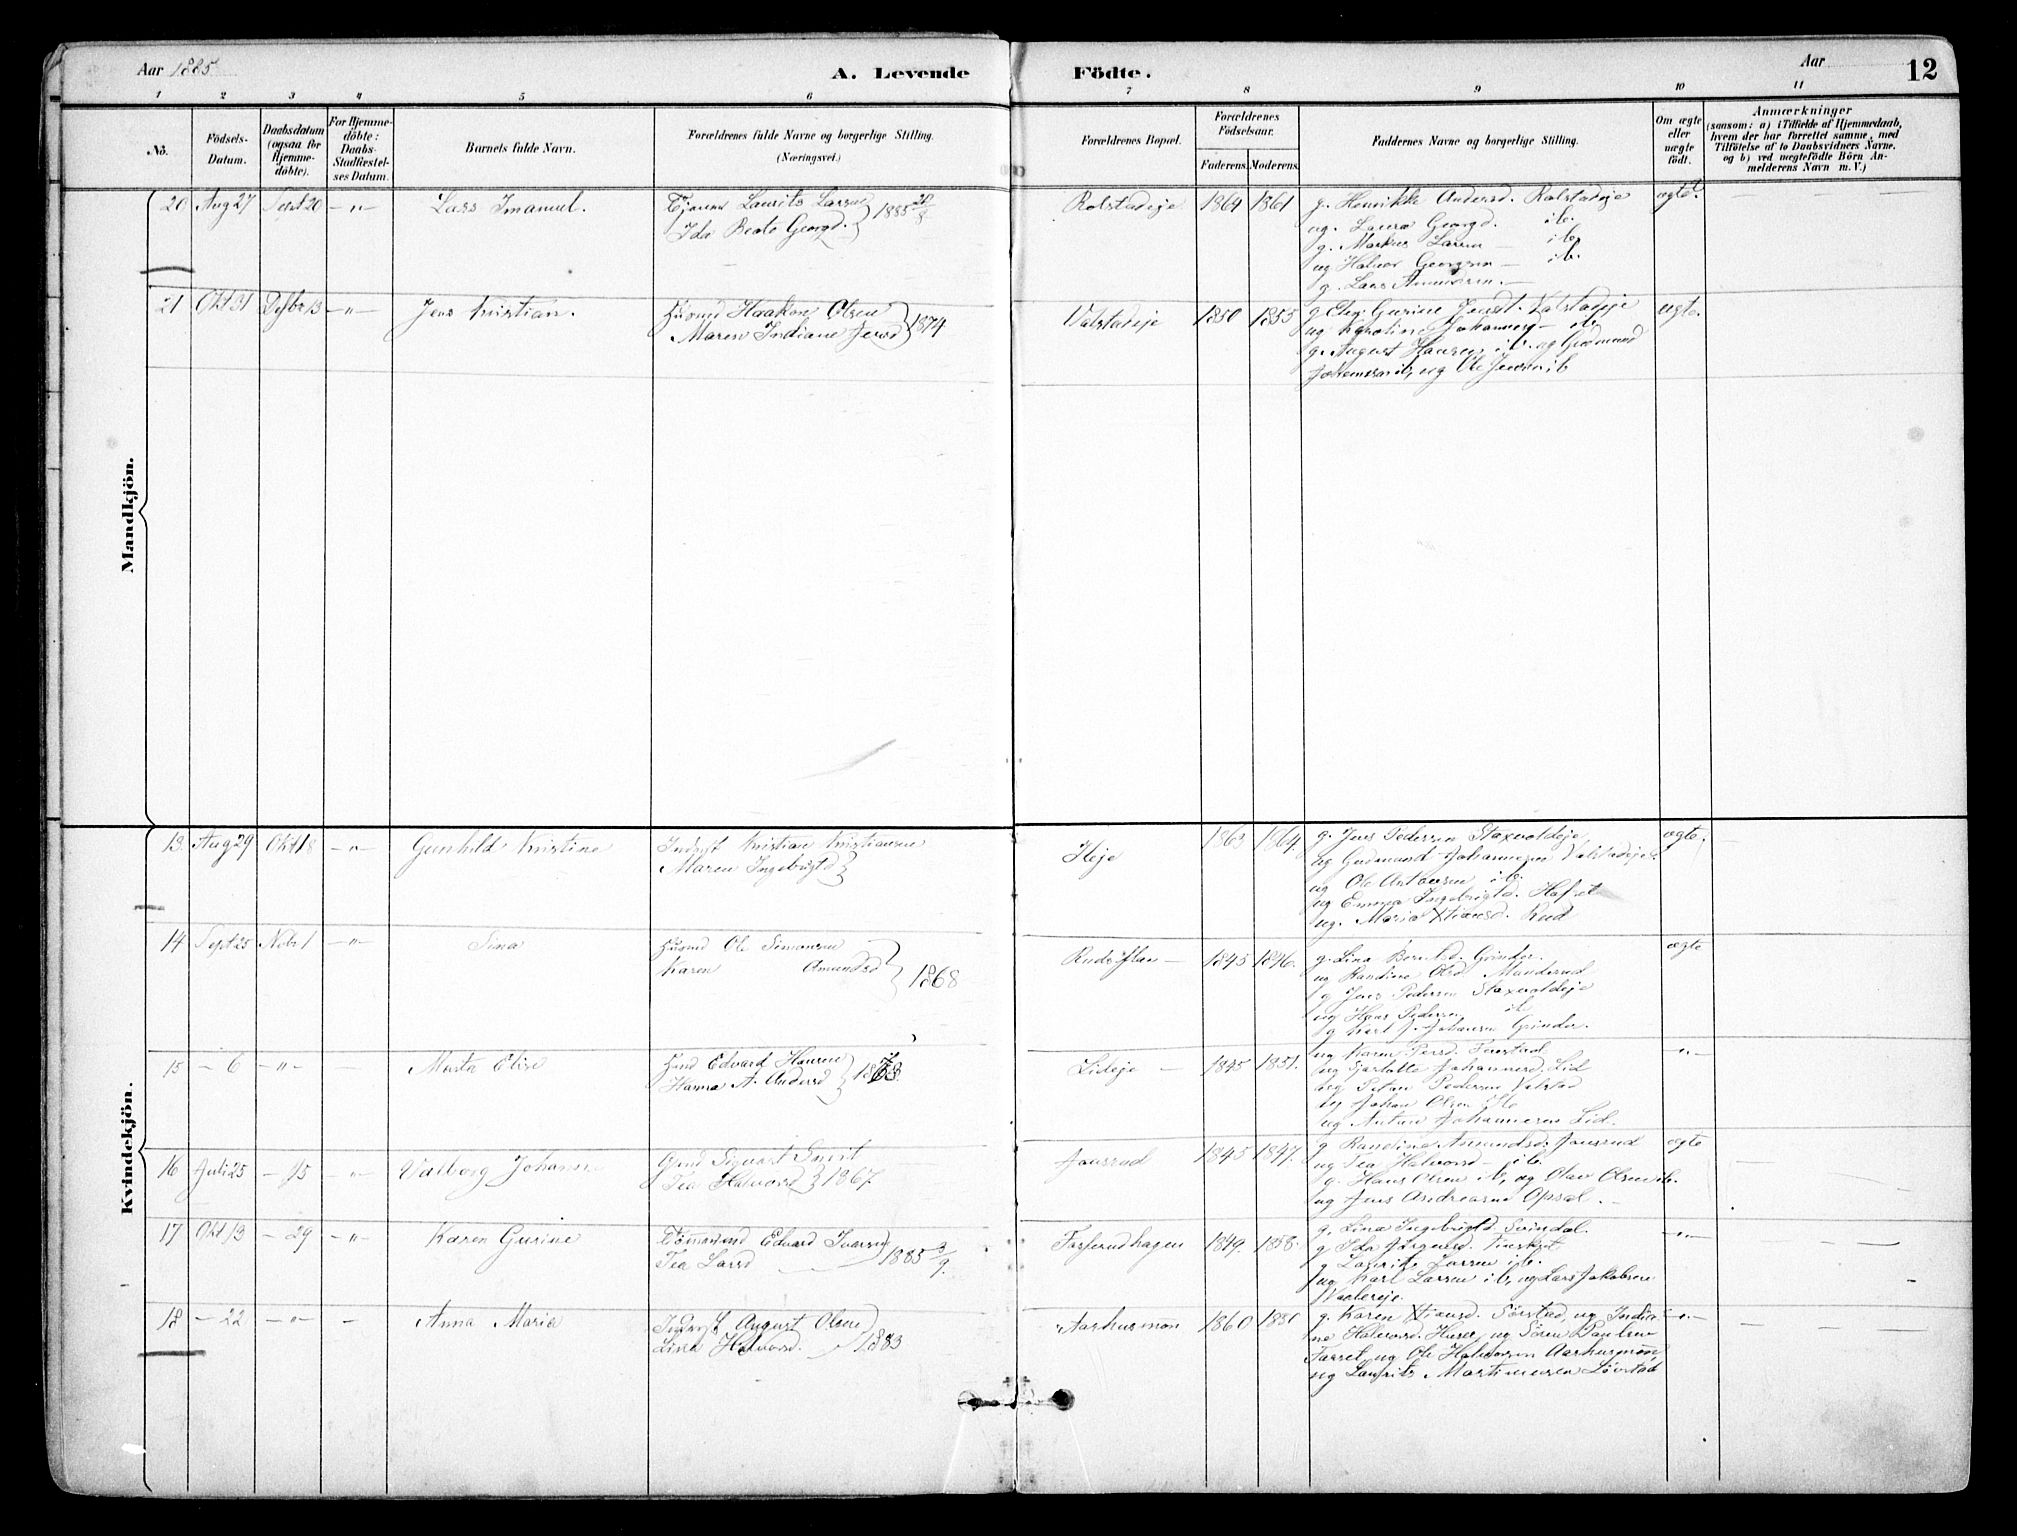 Aar 1885
A. Levende
Födte.
Aar
12
1 2 3 4 5 6 7 8 9 10 11
No.
Födsels-
Datum.
Daabsdatum
(ogsaa for
Hjemme-
döbte).
For Hjemme-
döbte:
Daabs-
Stadfæstel-
ses Datum.
Barnets fulde Navn.
Forældrenes fulde Navne og borgerlige Stilling.
(Næringsvei.)
Forældrenes Bopæl.
Forældrenes
Födselsaar.
Faderens.
Moderens.
Faddernes Navne og borgerlige Stilling.
Om ægte
eller
uægte
födt.
Anmærkninger
(saasom: a) i Tilfælde af Hjemmedaab,
hvem der har forrettet samme, med
Tilföielse af to Daabsvidners Navne.
og b) ved uægtefödte Börn An-
melderens Navn m. V.)
Mandkjön.
20 Aug 27 Sept 20 -"- Lars Imanuel.
Laurits Larsen
Ida Beate Georgd. 1885
Rolstadeje 1864 1861
g. Henrikke Andersd. Rolstadeje
ug. Laura Georgd. ib.
g. Markus Larsen - ib.
ug Halvor Georgsen - ib.
g. Lars Amundsen. -
ægte.
21 Okt 31 Desbr 13 -"- Jens Kristian.
Husmd Haakon Olsen
Maren Indiane Jensd 1874
Valstadeje 1850 1855
g Gurine Jensd. Valstadeje
ug Karoline Johannesd - ib.
g. August Hansen ib. og Gudmund
ib, ug Ole Jensen ib
ægte.
Kvindekjön.
13 Aug 29 Okt 18 -"- Gunhild Kristine
Inderst Kristian Kristiansen
Maren Ingebrigtsd
Heje 1863 1864.
g. Jens Pedersen Staxvoldeje
ug Gudmund Johannesen Valstadeje
ug Ole Antonsen ib.
ug Emma Ingebrigtsd.
ug. Maria Xtiansd. Rud
ægte.
14 Sept 25 Nobr 1 -"- Sina
Husmd Ole Simonsen
Karen Amundsd 1868
1845 1846.
g. Lina Grinder.
ug Randine Olsd. Manderud
g Jens Pedersen Staxvoldeje
ug Hans Pedersen ib
g Karl J. Johansen Grinder.
ægte
15 - 6 -"- - Marta Elise
Edvard Hansen
Hanna A. Andersd
Lideje - 1845 1851.
ug Karen Persd.
ug Johannesd. Lid
ug Pedersen Valstad
ug Johan Olsen
ug Anton Johannesen Lid.
-"-
16 Juli 25 - 15 -"- Valborg Johanne
Sigvart
Tea Halvorsd 1867.
Jansrud 1845 1847.
g Randine Amundsd. Jansrud
ug Tea Halvorsd - ib.
g. Hans Olsen ib, og Olav Olsen ib.
ug Jens Andreasen Opsal. -
ægte
17 Okt 13 - 29 -"- Karen Gurine
Tömmermd Edvard Iversen
Tea Larsd 1885 3/9.
1849. 1858.
g. Lina Ingebrigtsd. Svindal.
g Ida
g Laurits Larsen ib.
ug Karl Larsen ib, ug Lars Jakobsen
-"-
18 - 22 -"- - Anna Maria
Inderst August Olsen
Lina Halvorsd. 1883
Aarhusmoen 1860 1850
g. Karen Xtiansd. Sörstad, ug India-
ne Halvorsd. Huser, ug Sören Paulsen
ug Ole Halvorsen Aarhusmoen
ug Laurits Martinusen
-"-